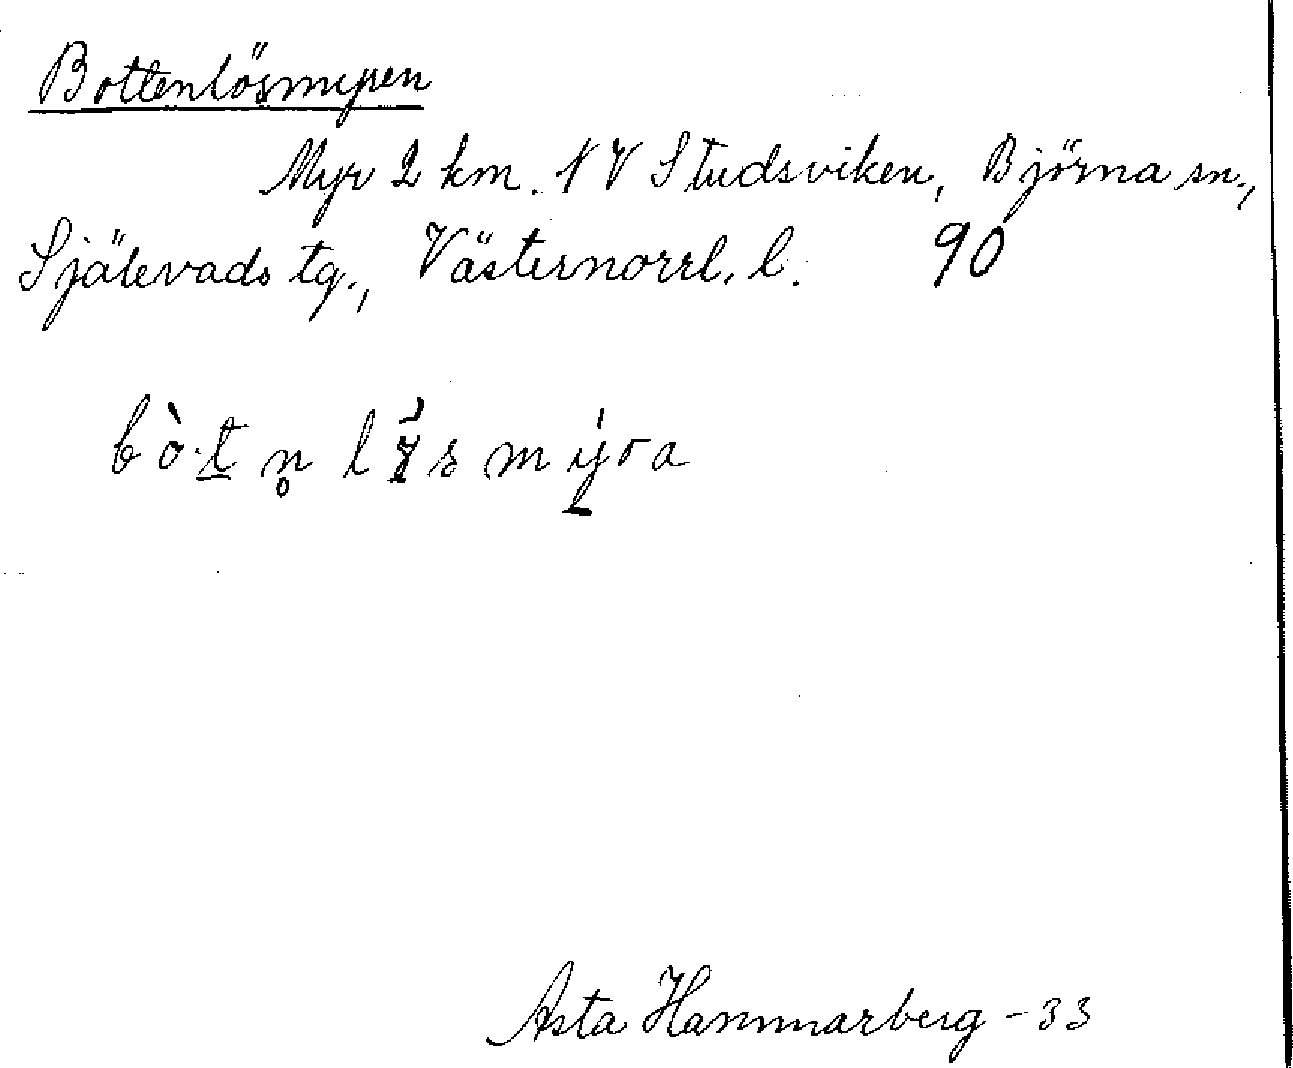 Bottenlösmyren
Myr 2 km. NV Studsviken, Björna sn.,
Själevads tg., Västernorrl. l. 90
bò·t̲n̥ l s mýra
Asta Hammarberg -33